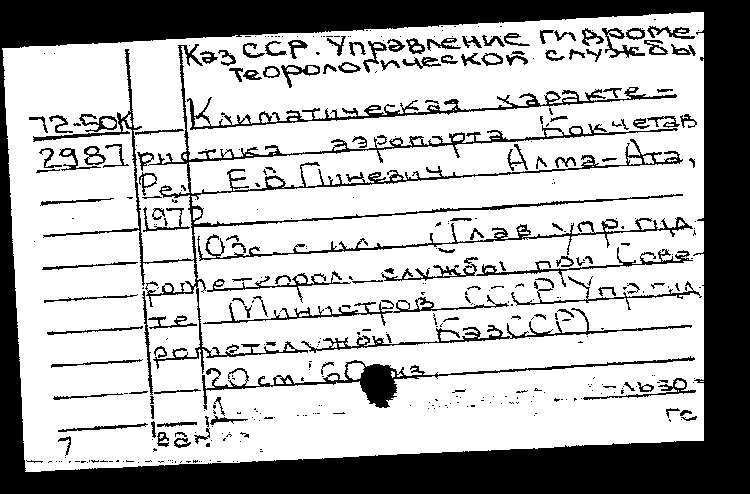 Каз ССР. Управление гидроме-
теорологической службы.
72-50К Климатическая характе-
2987 ристика аэропорта Кокчетав
Ред. Е.В. Пиневич. Алма-Ата,
1972.
103с. с ил. (Глав. упр. гид-
рометеорол. службы при Сове-
те Министров СССР. Упр. гид-
рометслужбы КазССР).
20 см. 60 экз.
-льзо-
ван
гс
7